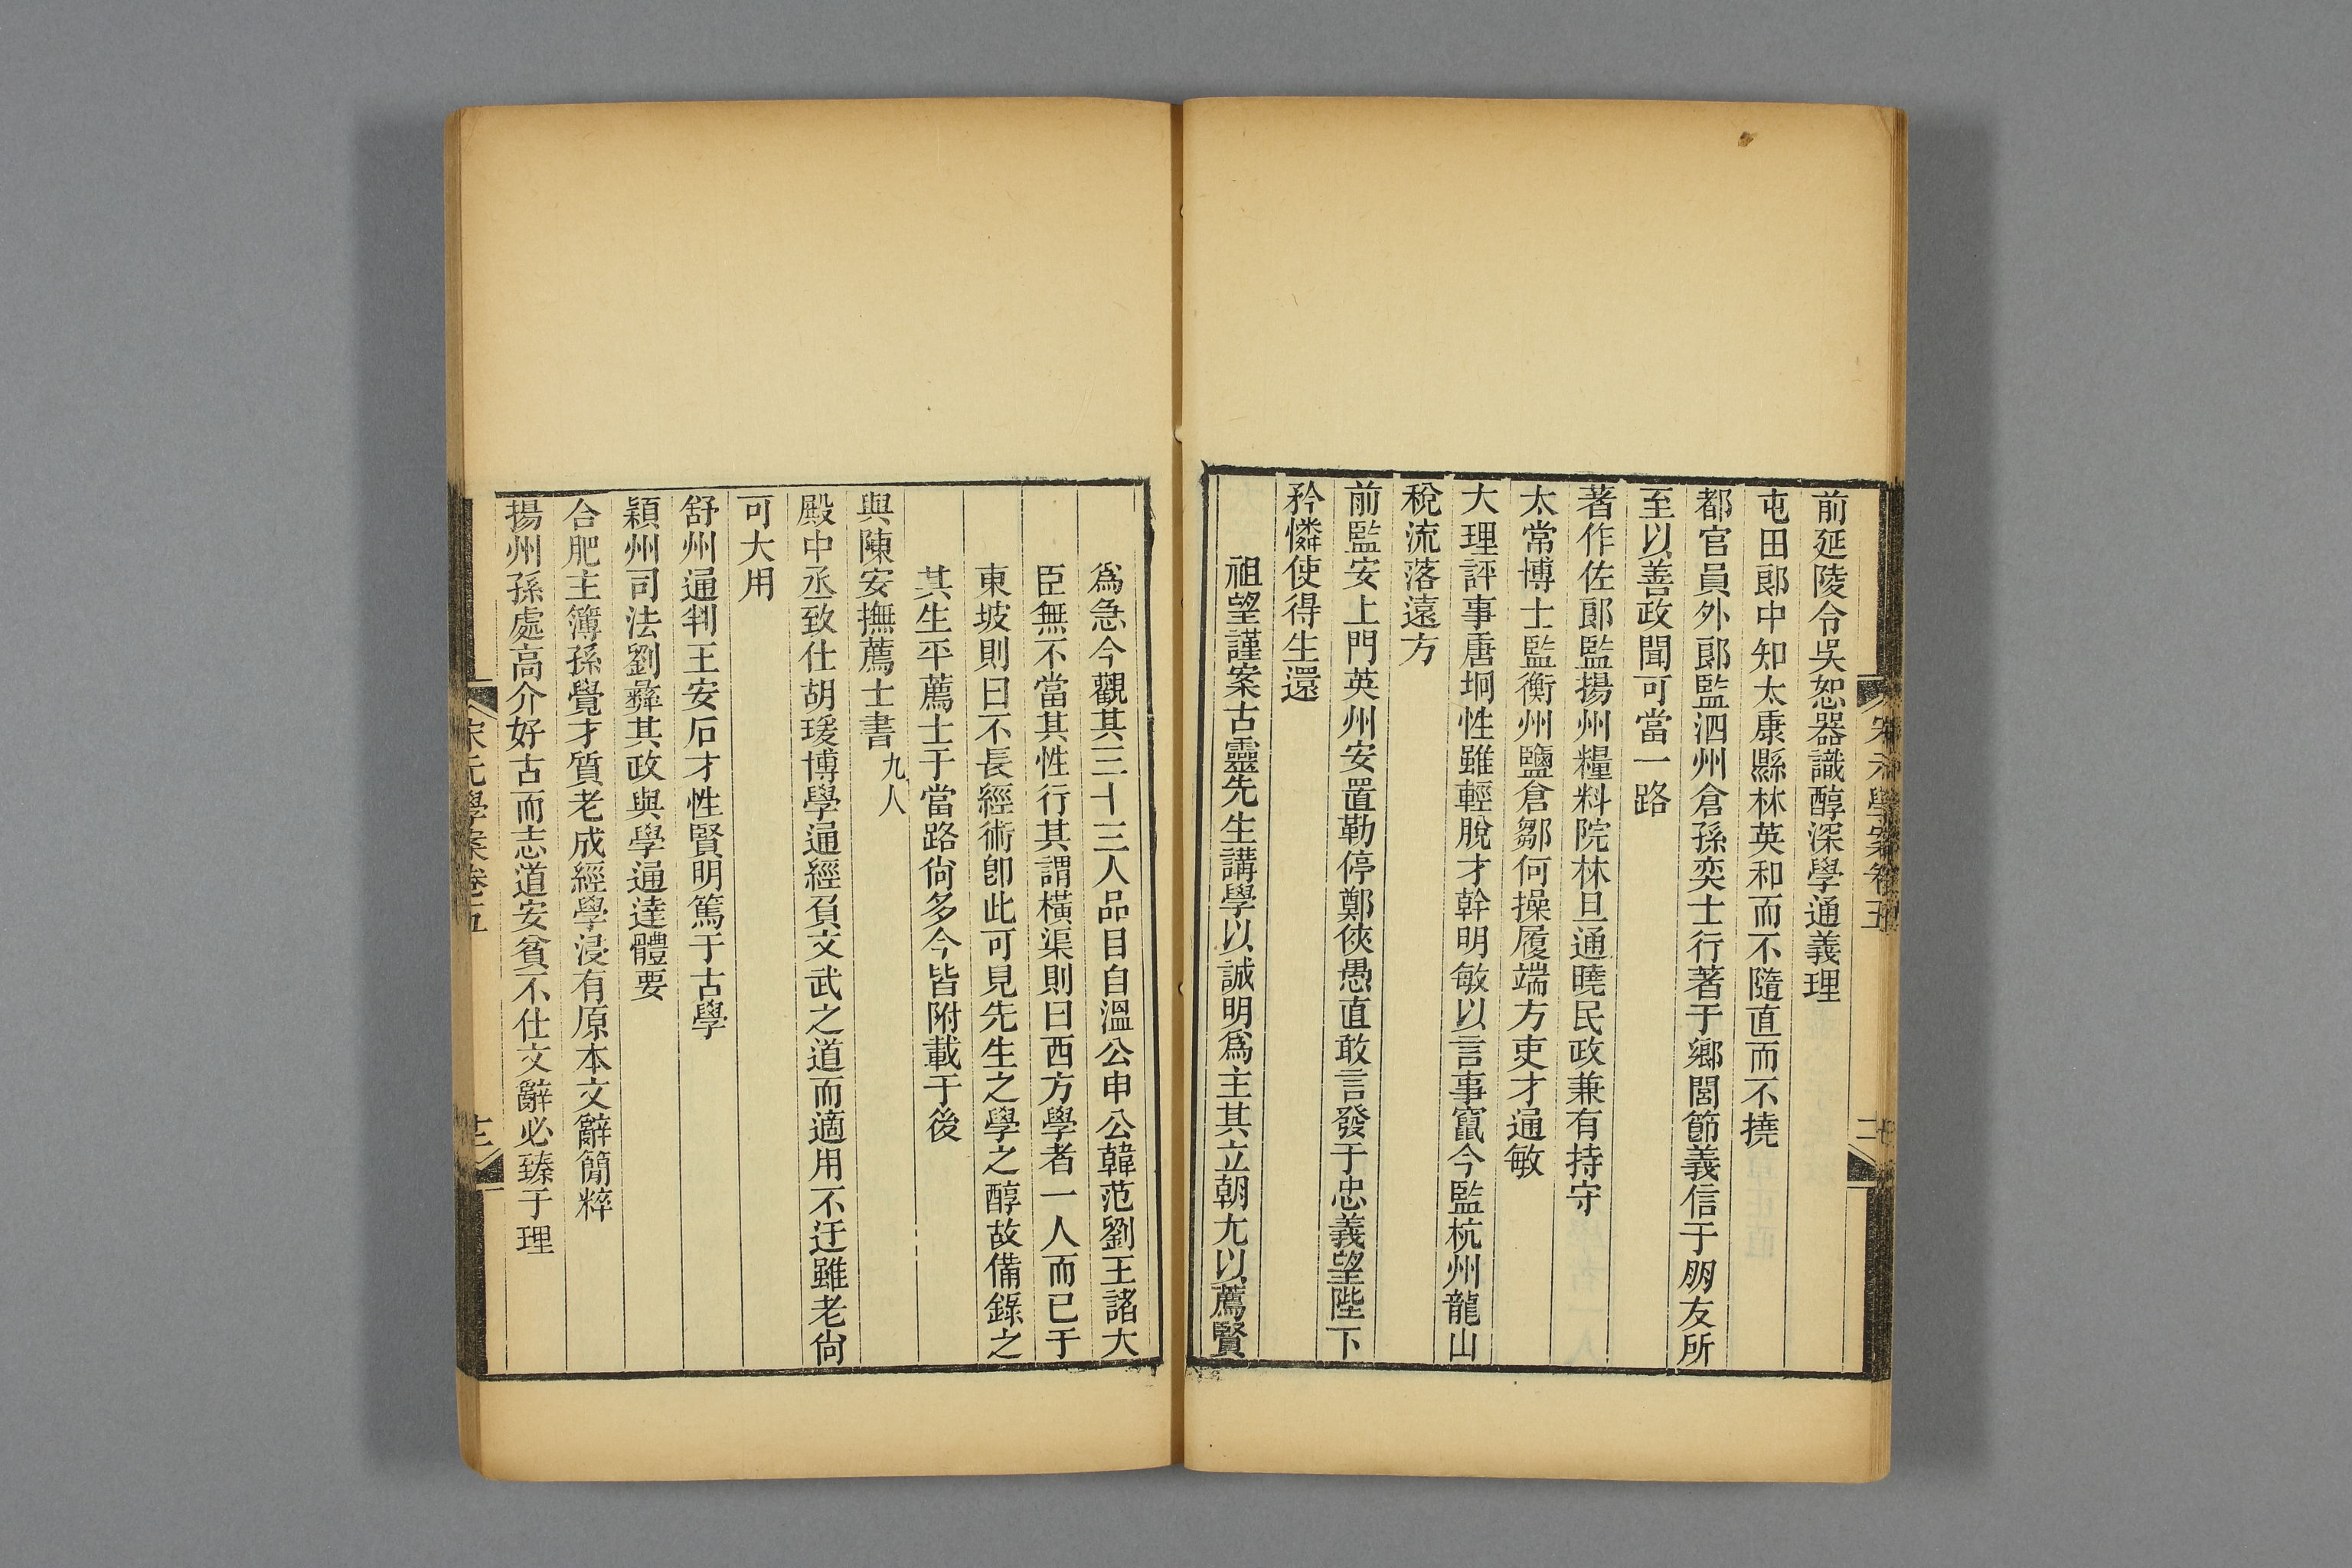 前延陵令吳恕器識醇深學通義理
屯田郎中知太康縣林英和而不隨直而不撓
都官員外郎監泗州倉孫奕士行著于鄉閭節義信于朋友所
至以善政聞可當一路
著作佐郎監揚州糧料院林旦通曉民政兼有持守
太常博士監衡州鹽倉鄒何操履端方吏才通敏
大理評事唐坰性雖輕脫才幹明敏以言事竄今監杭州龍山
稅流落遠方
前監安上門英州安置勒停鄭俠愚直敢言發于忠義望陛下
矜憐使得生還
祖望謹案古靈先生講學以誠明爲主其立朝尤以薦賢
爲急今觀其三十三人品目自溫公申公韓范劉王諸大
臣無不當其性行其謂橫渠則曰西方學者一人而已于
東坡則曰不長經術卽此可見先生之學之醇故備錄之
其生平薦士于當路尙多今皆附載于後
與陳安撫薦士書九人
殿中丞致仕胡瑗博學通經負文武之道而適用不迂雖老尙
可大用
舒州通判王安石才性賢明篤于古學
潁州司法劉彝其政與學通達體要
合肥主簿孫覺才質老成經學浸有原本文辭簡粹
揚州孫處高介好古而志道安貧不仕文辭必臻于理
宋元學案卷五